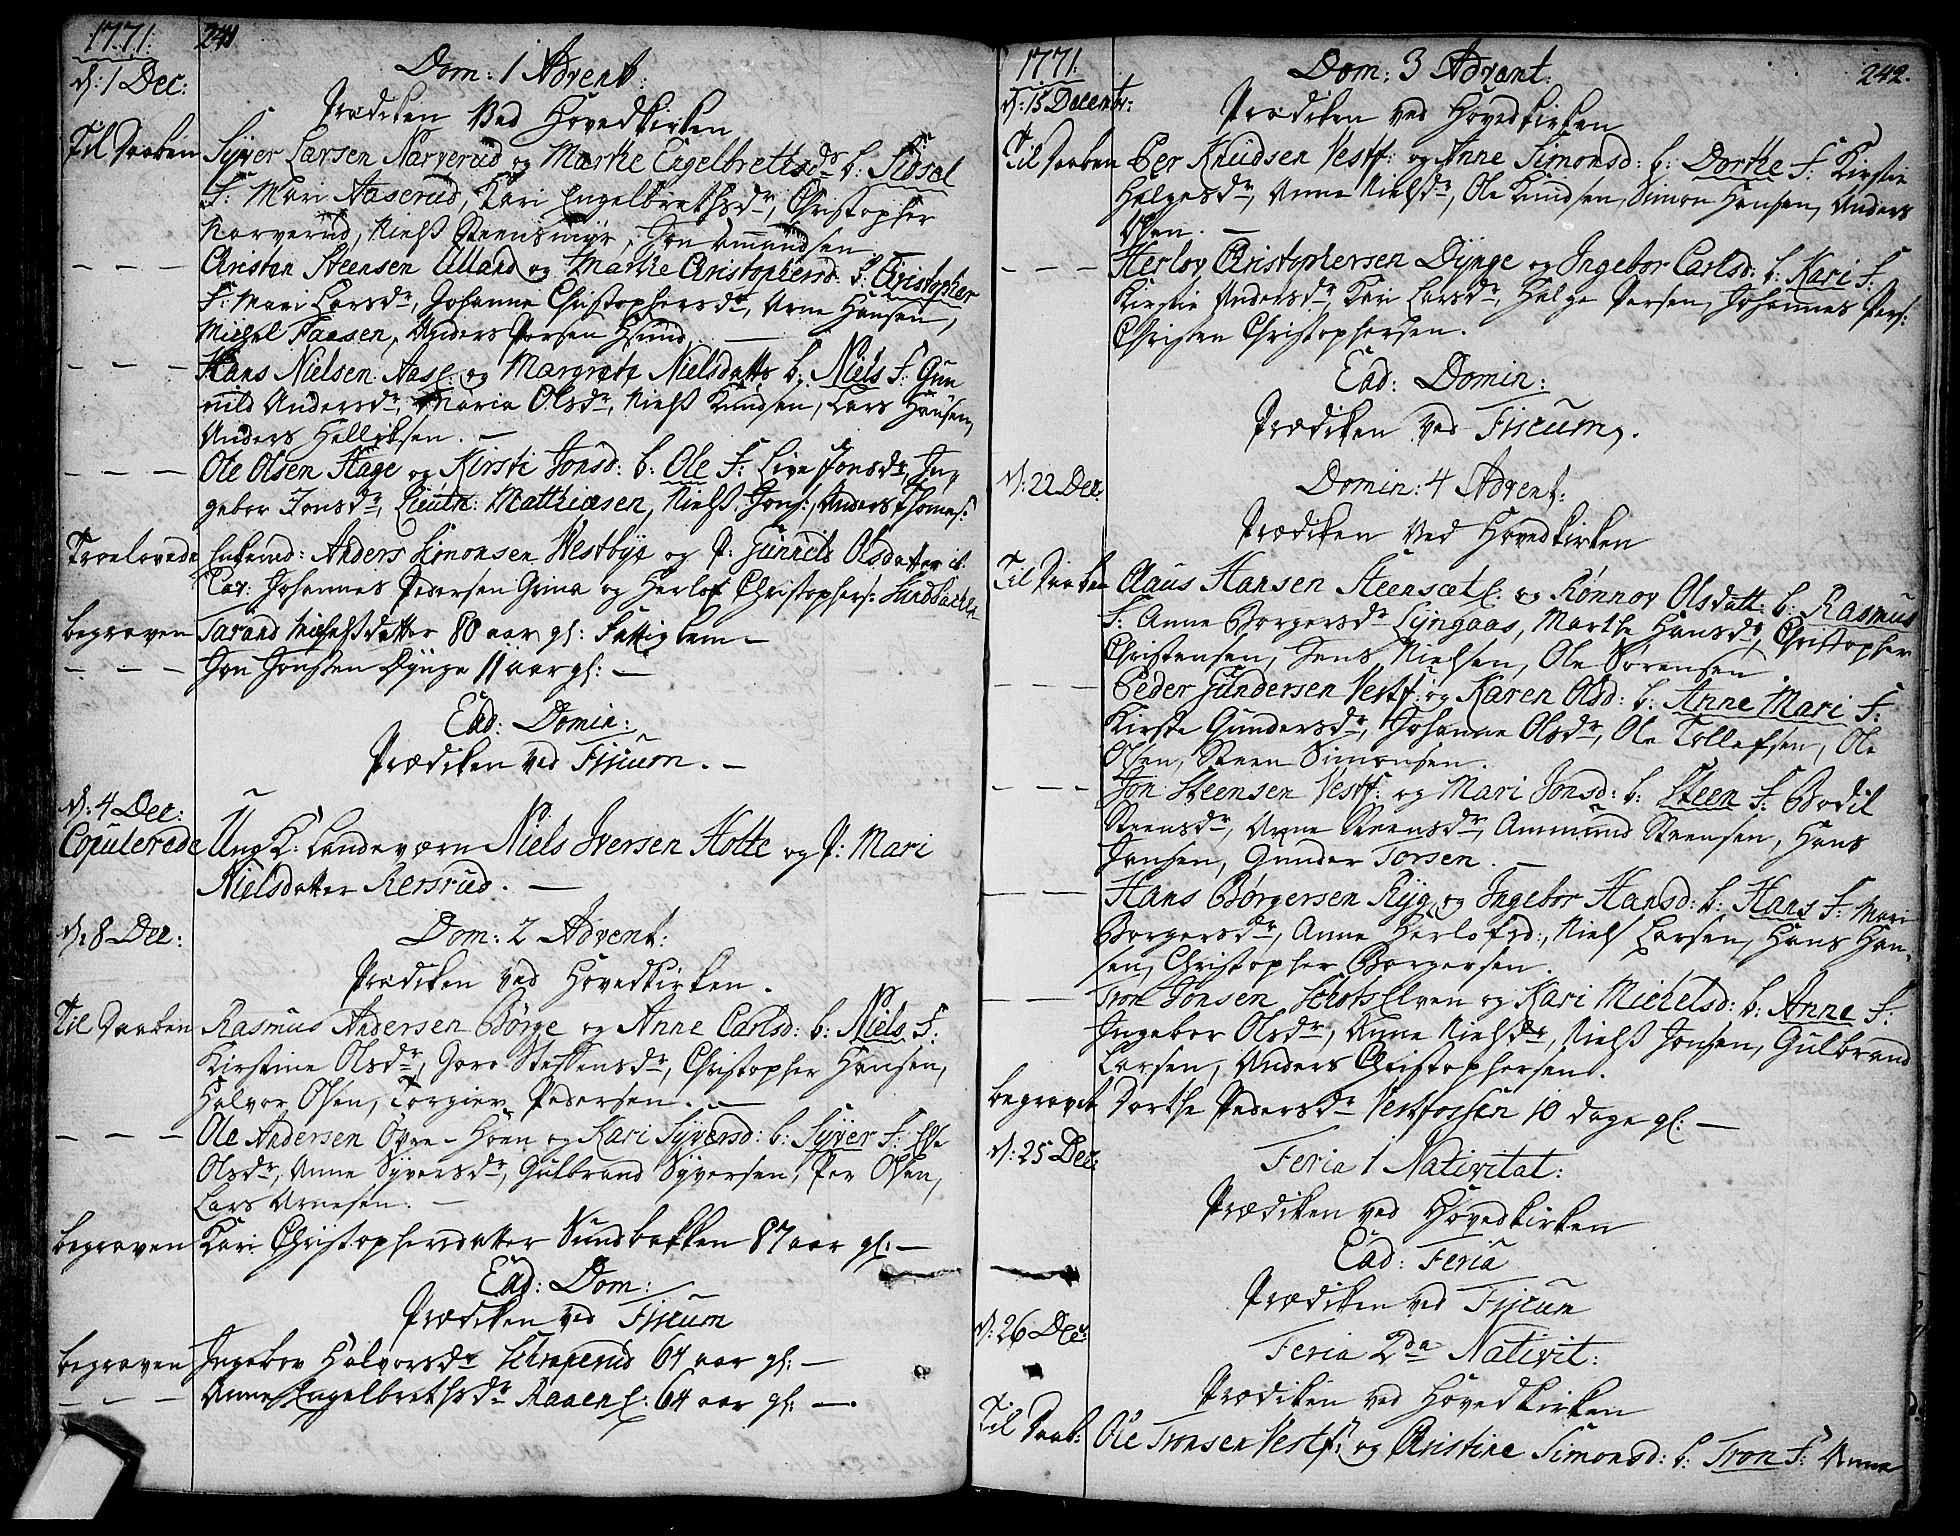 1771.
241
d: 1 Dec:
Dom: 1 Advent:
Prædiken Ved Hovedkirken
Til Daaben
Syver Larsen Narverud og Marthe Engelbrettsdr b: Sidsel
F: Mari Aaserud, Kari Engelbrethsdr, Christopher
Narverud, Niels Steensmyr, Jon Amundsen
- - -
Christen Steensen Ulland og Marthe Christophersd: b: Christopher
F: Mari Larsdr, Johanne Christophersdr, Arne Hansen,
Michel Faesen, Anders Persen
- - -
Hans Nielsen AasE: og Margrethe Nielsdatter b: Niels F: Gun
nild Andersdr, Maria Olsdr, Niels Knudsen, Lars Hansen,
Anders Hellgesen. -
- - -
Ole Olsen Hage og Kirsti Jonsd: b: Ole F: Live Jonsdr, In-
gebor Jonsdr, Lieutn: Matthiæsen, Niels Jons:, Anders Thomes:
Troelovede
Enkemd: Anders Simonsen Vestbye og P: Gunnild Olsdatter ib:
Cav: Johannes Pedersen Grina og Herlof Christophers: Sundbachen
begraven
Tarand Nielsdatter 80 aar gl: Fattiglem -
- - -
Jon Jonsen Dynge 11 aar gl: -
Ead: Domin:
Prædiken ved Fiscum. -
d: 4 Dec:
Copulerede
Ung K: Landeværn Niels Iversen Hotte og P: Mari
Nielsdatter Rersrud. -
d: 8 Dec:
Dom: 2 Advent:
Prædiken ved Hovedkirken.
Til Daaben
Rasmus Andersen Børge og Anne Carlsd: b: Niels F:
Kirstine Olsdr, Goro Steffensdr, Christopher Hansen,
Halvor Olsen, Torgier Pedersen. -
- - -
Ole Andersen Øvre-Hoen og Kari Syversd: b: Syver F: Else
Olsdr, Anne Syversdr, Gulbrand Syversen, Per Olsen,
Lars Arnesen. -
begraven
Kari Christophersdatter Sundbakken 87 aar gl: -
Ead: Dom:
Prædiken ved Fiscum
begraven
Ingebor Halvorsdr Schraperud 64 aar gl: -
- - -
Anne Engelbrethsdr RaaenE: 64 aar gl: -.
1771.
242.
d: 15 Decembr:
Dom: 3 Advent:
Prædiken ved Hovedkirken
Til Daaben
Per Knudsen Vestf: og Anne Simonsd: b: Dorthe F: Kirstie
Helgesdr, Anne Nielsdr, Ole Knudsen, Simon Hansen, Anders
Olsen. -
- - -
Herlov Christophersen Dynge og Ingebor Carlsd: b: Kari F:
Kirstie Andersdr, Kari Larsdr, Helge Persen, Johannes Pers:
Christen Christophersen.
Ead: Domin:
Prædiken ved Fiscum.
d: 22 Dec:
Domin: 4 Advent:
Prædiken ved Hovedkirken
Til Daaben
Claus Hansen SteensætE: og Rønnov Olsdatt: b: Rasmus
F: Anne Borgersdr Lyngaas, Marthe Hansdr, Christopher
Christensen, Jens Nielsen, Ole Sørensen
- - -
Peder Gundersen Vestf: og Karen Olsd: b: Anne Mari F:
Kirste Gundersdr, Johanne Olsdr, Ole Tollefsen, Ole
Olsen, Steen Simonsen.
- - -
Jon Steensen Vestf: og Mari Jonsd: b: Steen F: Bodil
Steensdr, Anne Steensdr, Ammund Steensen, Hans
Jansen, Gunder Torsen. -
- - -
Hans Børgersen Ryg og Ingebor Hansd: b: Hans F: Mari
Borgersdr, Anne Herlofsd:, Niels Larsen, Hans Han-
sen, Christopher Borgersen.
- - -
Tron Jonsen SchotsElven og Kari Michelsd: b: Anne F:
Ingebor Olsdr, Anne Nielsdr, Niels Jonsen, Gulbrand
Larsen, Anders Christophersen.
begravet
Dorthe Pedersdr Vestfossen 10 dage gl: -
d: 25 Dec:
Feria 1 Nativitat:
Prædiken ved Hovedkirken
Ead: Feria
Prædiken ved Fiscum
d: 26 Dec:
Feria 2da Nativit:
Prædiken ved Hovedkirken
Til Daab:
Ole Tronsen Vestf: og Christine Simonsd: b: Tron F: Anne